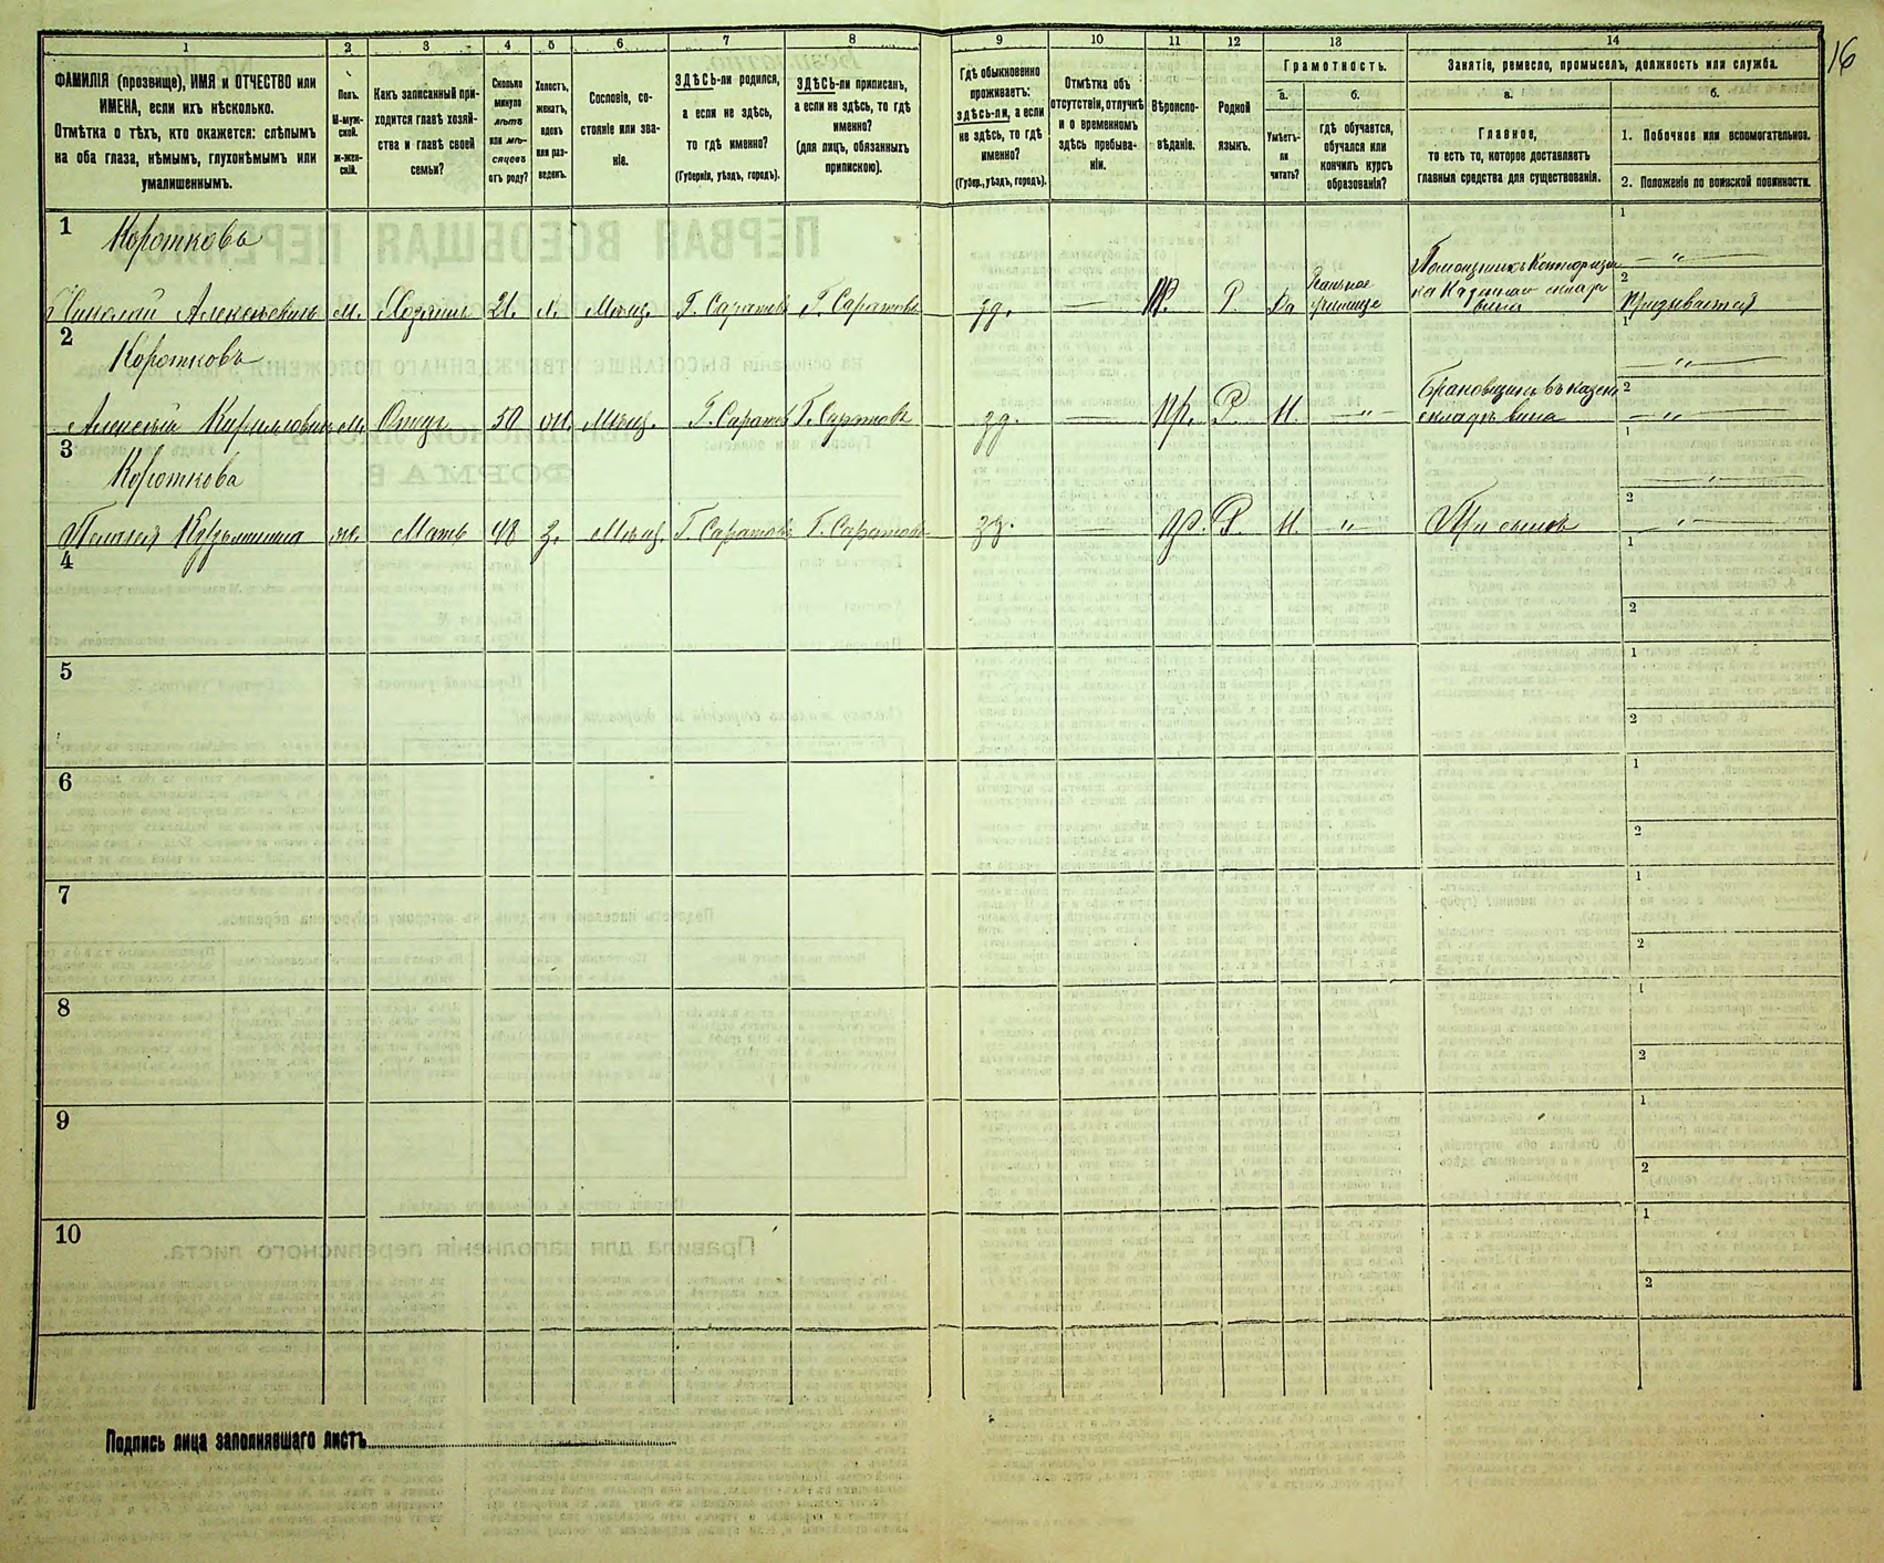 16
1 2 3 4 5 6 7 8 9 10 11 12 13 14
ФАМИЛІЯ (прозвище), ИМЯ и ОТЧЕСТВО или
ИМЕНА, если ихъ нѣсколько.
Отмѣтка о тѣхъ, кто окажется: слѣпымъ
на оба глаза, нѣмымъ, глухонѣмымъ или
умалишеннымъ.
Полъ.
М-муж-
ской.
ж-жен-
скій.
Какъ записанный при-
ходится главѣ хозяй-
ства и главѣ своей
семьи?
Сколько
минуло
лѣтъ
или мѣ-
сяцевъ
отъ роду?
Холостъ,
женатъ,
вдовъ
или раз-
веденъ.
Сословіе, со-
стояніе или зва-
ніе.
ЗДѢСЬ-ли родился,
а если не здѣсь,
то гдѣ именно?
(Губернія, уѣздъ, городъ).
ЗДѢСЬ-ли приписан,
а если не здѣсь, то гдѣ
именно?
(для лицъ, обязанныхъ
припискою).
Гдѣ обыкновенно
проживаетъ:
здѣсь-ли, а если
не здѣсь, то гдѣ
именно?
(Губер., уѣздъ, городъ).
Отмѣтка объ
отсутствіи, отлучкѣ
и о временномъ
здѣсь пребыва-
ніи.
Вѣроиспо-
вѣданіе.
Родной
языкъ.
Грамотность.
а.
Умѣетъ-
ли
читать?
б.
гдѣ обучается,
обучался или
кончилъ курсъ
образованія?
Занятіе, ремесло, промыселъ, должность или служба.
а.
Главное,
то есть то, которое доставляетъ
главныя средства для существованія.
б.
1. Побочное или вспомогательное.
2. Положеніе по воинской повинности.
1 Коротковъ
Николай Алексѣевичъ м. Хозяинъ 21. х. Мѣщ. Г. Саратовъ Г. Саратовъ зд. — Пр. Р. Да Реальное
училище
Помощникъ Конторщи
ка Казеннаго склада
вина
1 — " —
2 Призывается
2 Коротковъ
Алексѣй Кириловичъ м. Отецъ 50 ж. Мѣщ. Г. Саратовъ Г. Саратовъ зд. — Пр. Р. Н. — " —
Браковщикъ въ казен
складѣ вина
1 — " —
2 — " —
3 Короткова
Пелагея Кузьминина ж. Мать 48 з. Мѣщ. Г. Саратовъ Г. Саратовъ зд. — Пр. Р. Н. " При сынѣ
1 — " —
2 — " —
4 1
2
5 1
2
6 1
2
7 1
2
8 1
2
9 1
2
10 1
2
Подпись лица заполнявшаго листъ